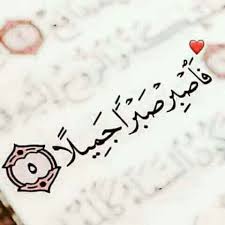 فَاصْبِرْ صَبْرًا جَمِيلًا ٥